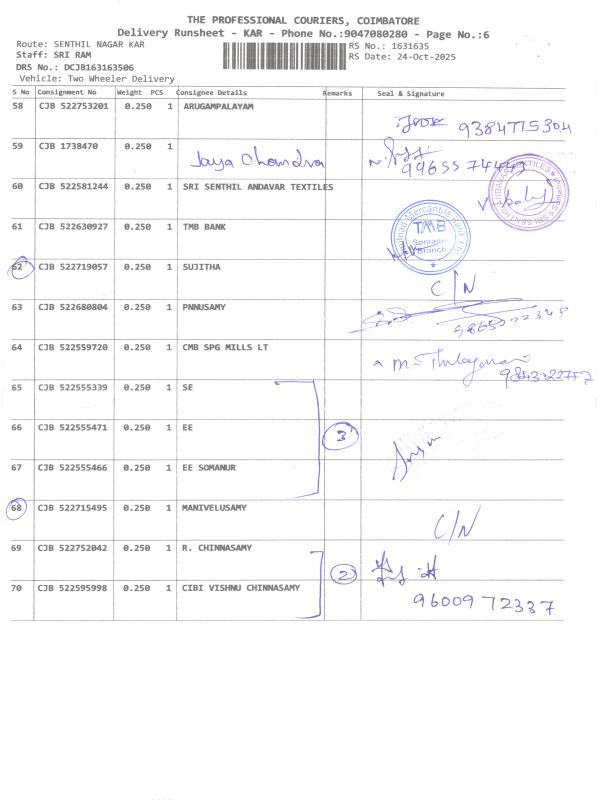 THE PROFESSIONAL COURIERS, COIMBATORE
Delivery Runsheet - KAR - Phone No.:9047080280 - Page No.:6
Route: SENTHIL NAGAR KAR RS No.: 1631635
Staff: SRI RAM RS Date: 24-Oct-2025
DRS No.: DCJB163163506
Vehicle: Two Wheeler Delivery
S No Consignment No Weight PCS Consignee Details Remarks Seal & Signature
58 CJB 522753201 0.250 1 ARUGAMPALAYAM
9384775304
59 CJB 1738470 0.250 1 Jaya Chandra
9965574449
60 CJB 522581244 0.250 1 SRI SENTHIL ANDAVAR TEXTILES
61 CJB 522630927 0.250 1 TMB BANK
TMB
Branch
62 CJB 522719057 0.250 1 SUJITHA C/N
63 CJB 522680804 0.250 1 PNNUSAMY
64 CJB 522559720 0.250 1 CMB SPG MILLS LT
65 CJB 522555339 0.250 1 SE
66 CJB 522555471 0.250 1 EE 3
67 CJB 522555466 0.250 1 EE SOMANUR
68 CJB 522715495 0.250 1 MANIVELUSAMY C/N
69 CJB 522752042 0.250 1 R. CHINNASAMY
2
70 CJB 522595998 0.250 1 CIBI VISHNU CHINNASAMY
9600972337